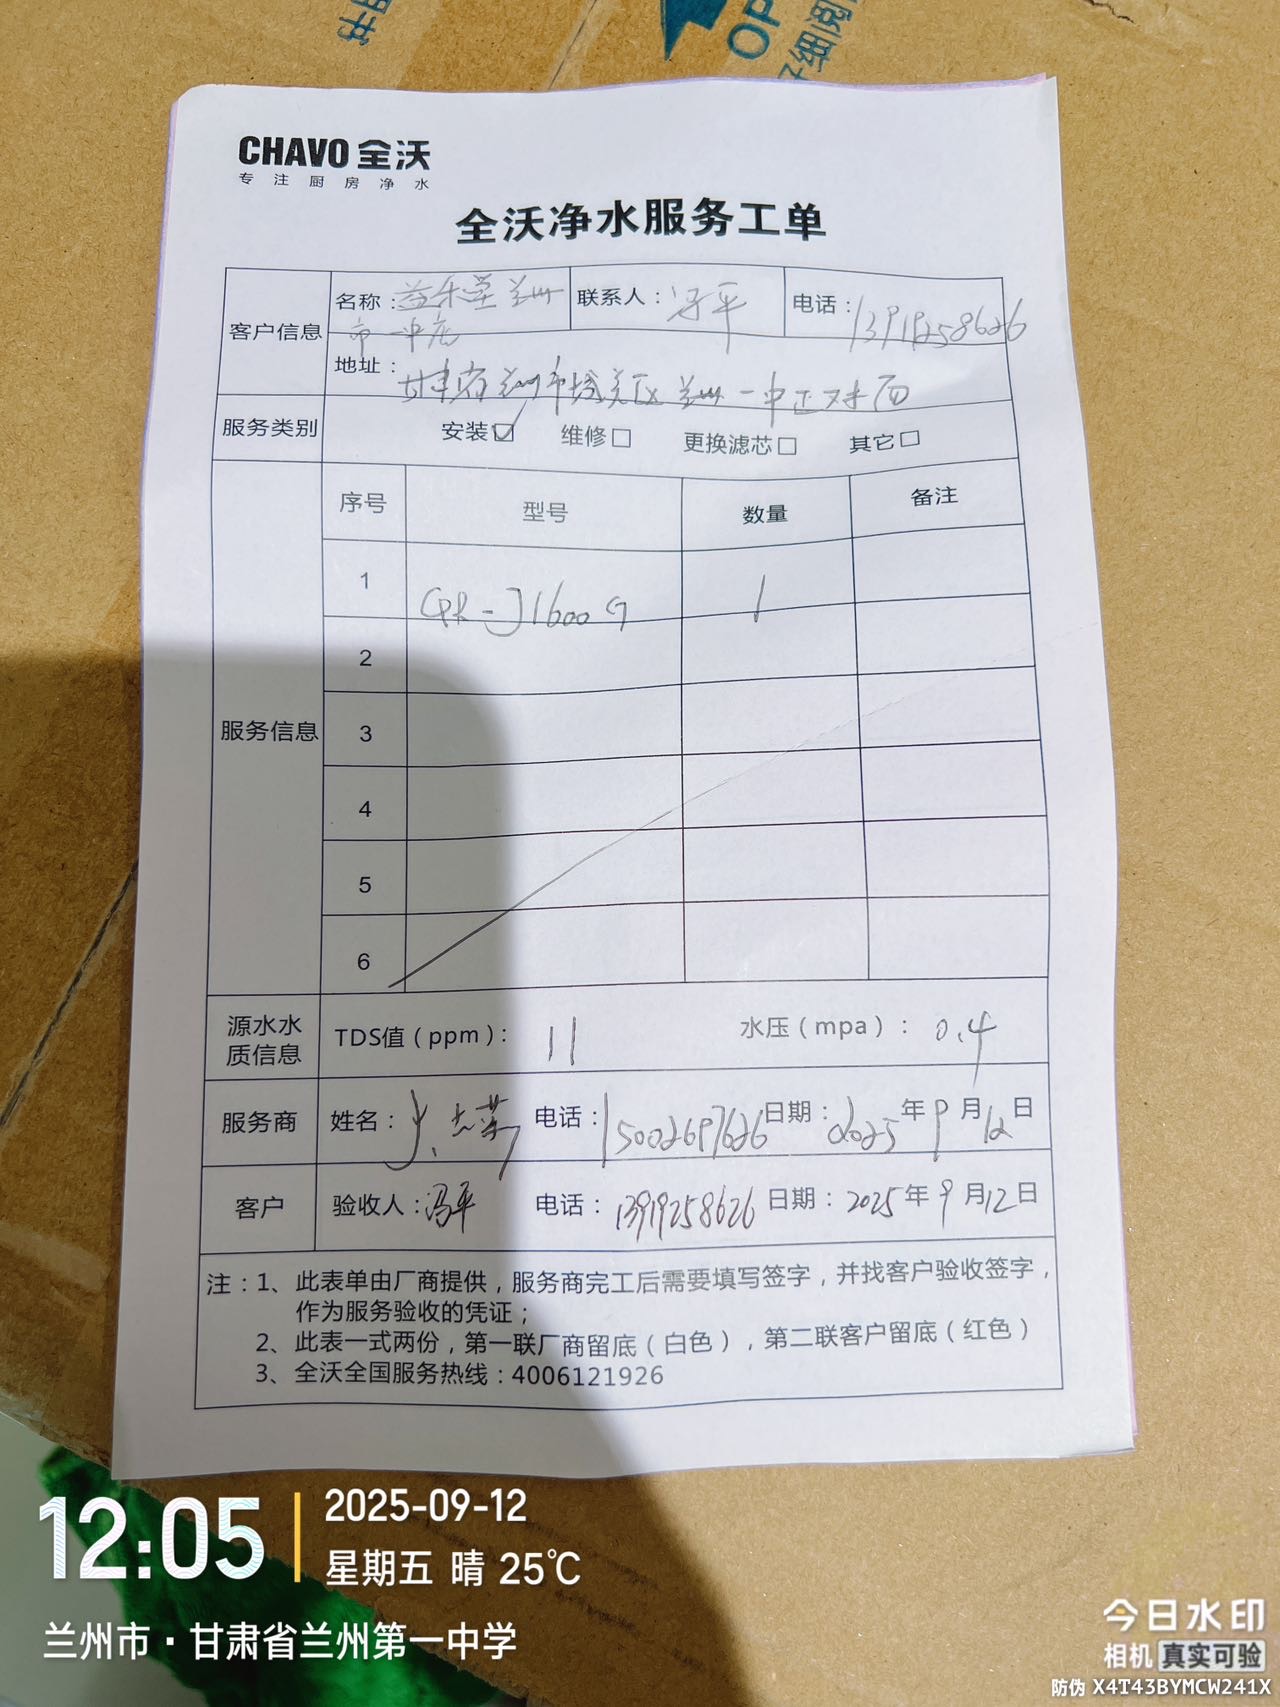 用书
OP
仔细阅
CHAVO 全沃
专注厨房净水
全沃净水服务工单
客户信息 名称：益禾堂兰州市一中店 联系人：冯平 电话：13919258626
地址：甘肃省兰州市城关区兰州一中正对面
服务类别 安装☑ 维修□ 更换滤芯□ 其它□
服务信息 序号 型号 数量 备注
1 CPR-J1600G 1
2
3
4
5
6
源水水质信息 TDS值（ppm）： 11 水压（mpa）： 0.4
服务商 姓名： 电话：15002697626 日期：2025年9月12日
客户 验收人：冯平 电话：13919258626 日期：2025年9月12日
注：1、此表单由厂商提供，服务商完工后需要填写签字，并找客户验收签字，
作为服务验收的凭证；
2、此表一式两份，第一联厂商留底（白色），第二联客户留底（红色）
3、全沃全国服务热线：4006121926
12:05
2025-09-12
星期五 晴 25℃
兰州市·甘肃省兰州第一中学
今日水印
相机 真实可验
防伪 X4T43BYMCW241X